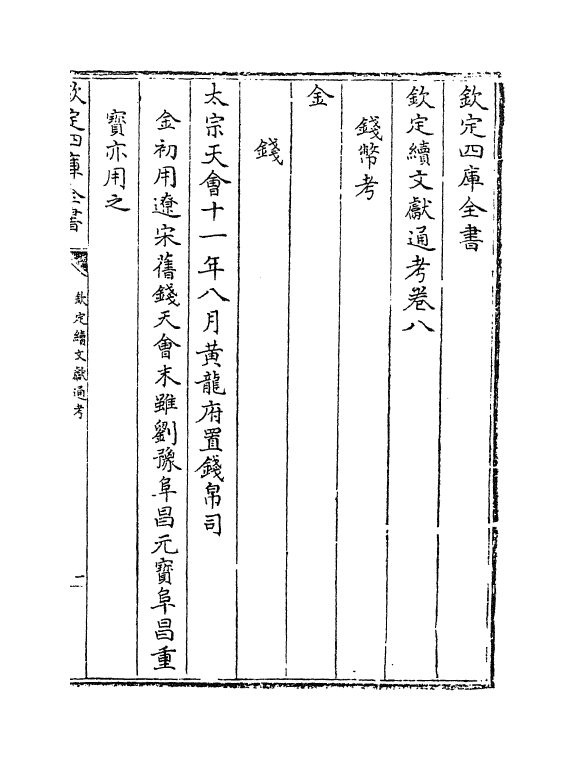 欽定四庫全書
欽定續文獻通考卷八
錢幣考
金
錢
太宗天會十一年八月黃龍府置錢帛司
金初用遼宋舊錢天會末雖劉豫阜昌元寶阜昌重
寶亦用之
欽定四庫全書
欽定續文獻通考